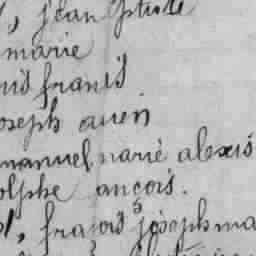 jean
marie
franus
oseph auen
manuel narie alexis
olphe ancois.
frasois josephma